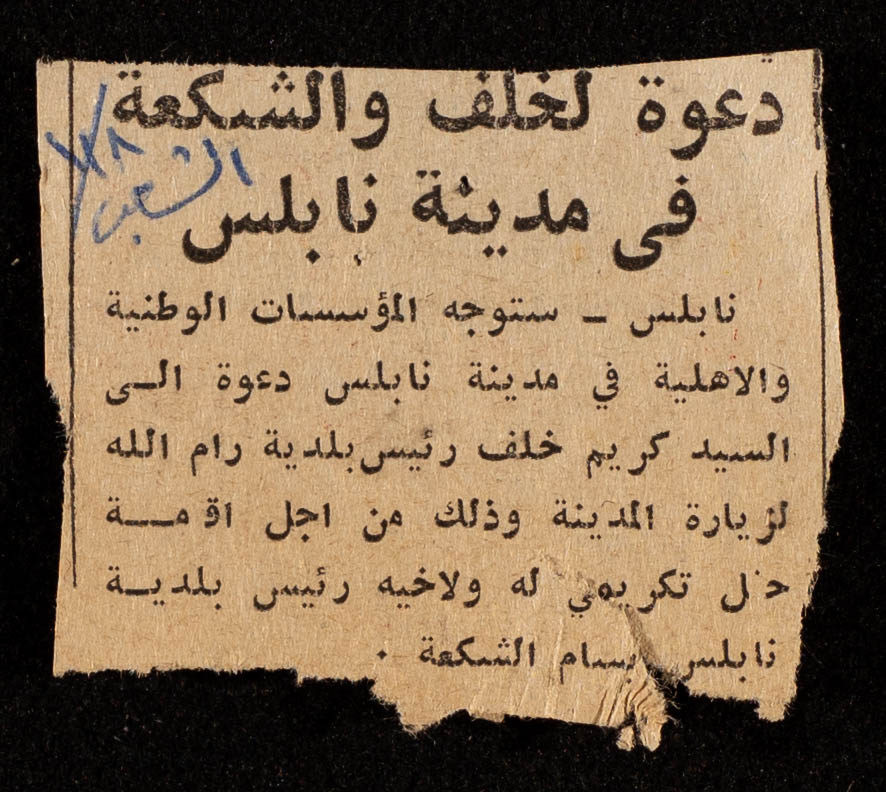 دعوة لخلف والشكعة
في مدينة نابلس
الشعب
نابلس ــ ستوجه المؤسسات الوطنية
والاهلية في مدينة نابلس دعوة الــى
السيد كريم خلف رئيس بلدية رام الله
لزيارة المدينة وذلك من اجل اقامــة
حفل تكريمي له ولاخيه رئيس بلديــة
نابلس بسام الشكعة .